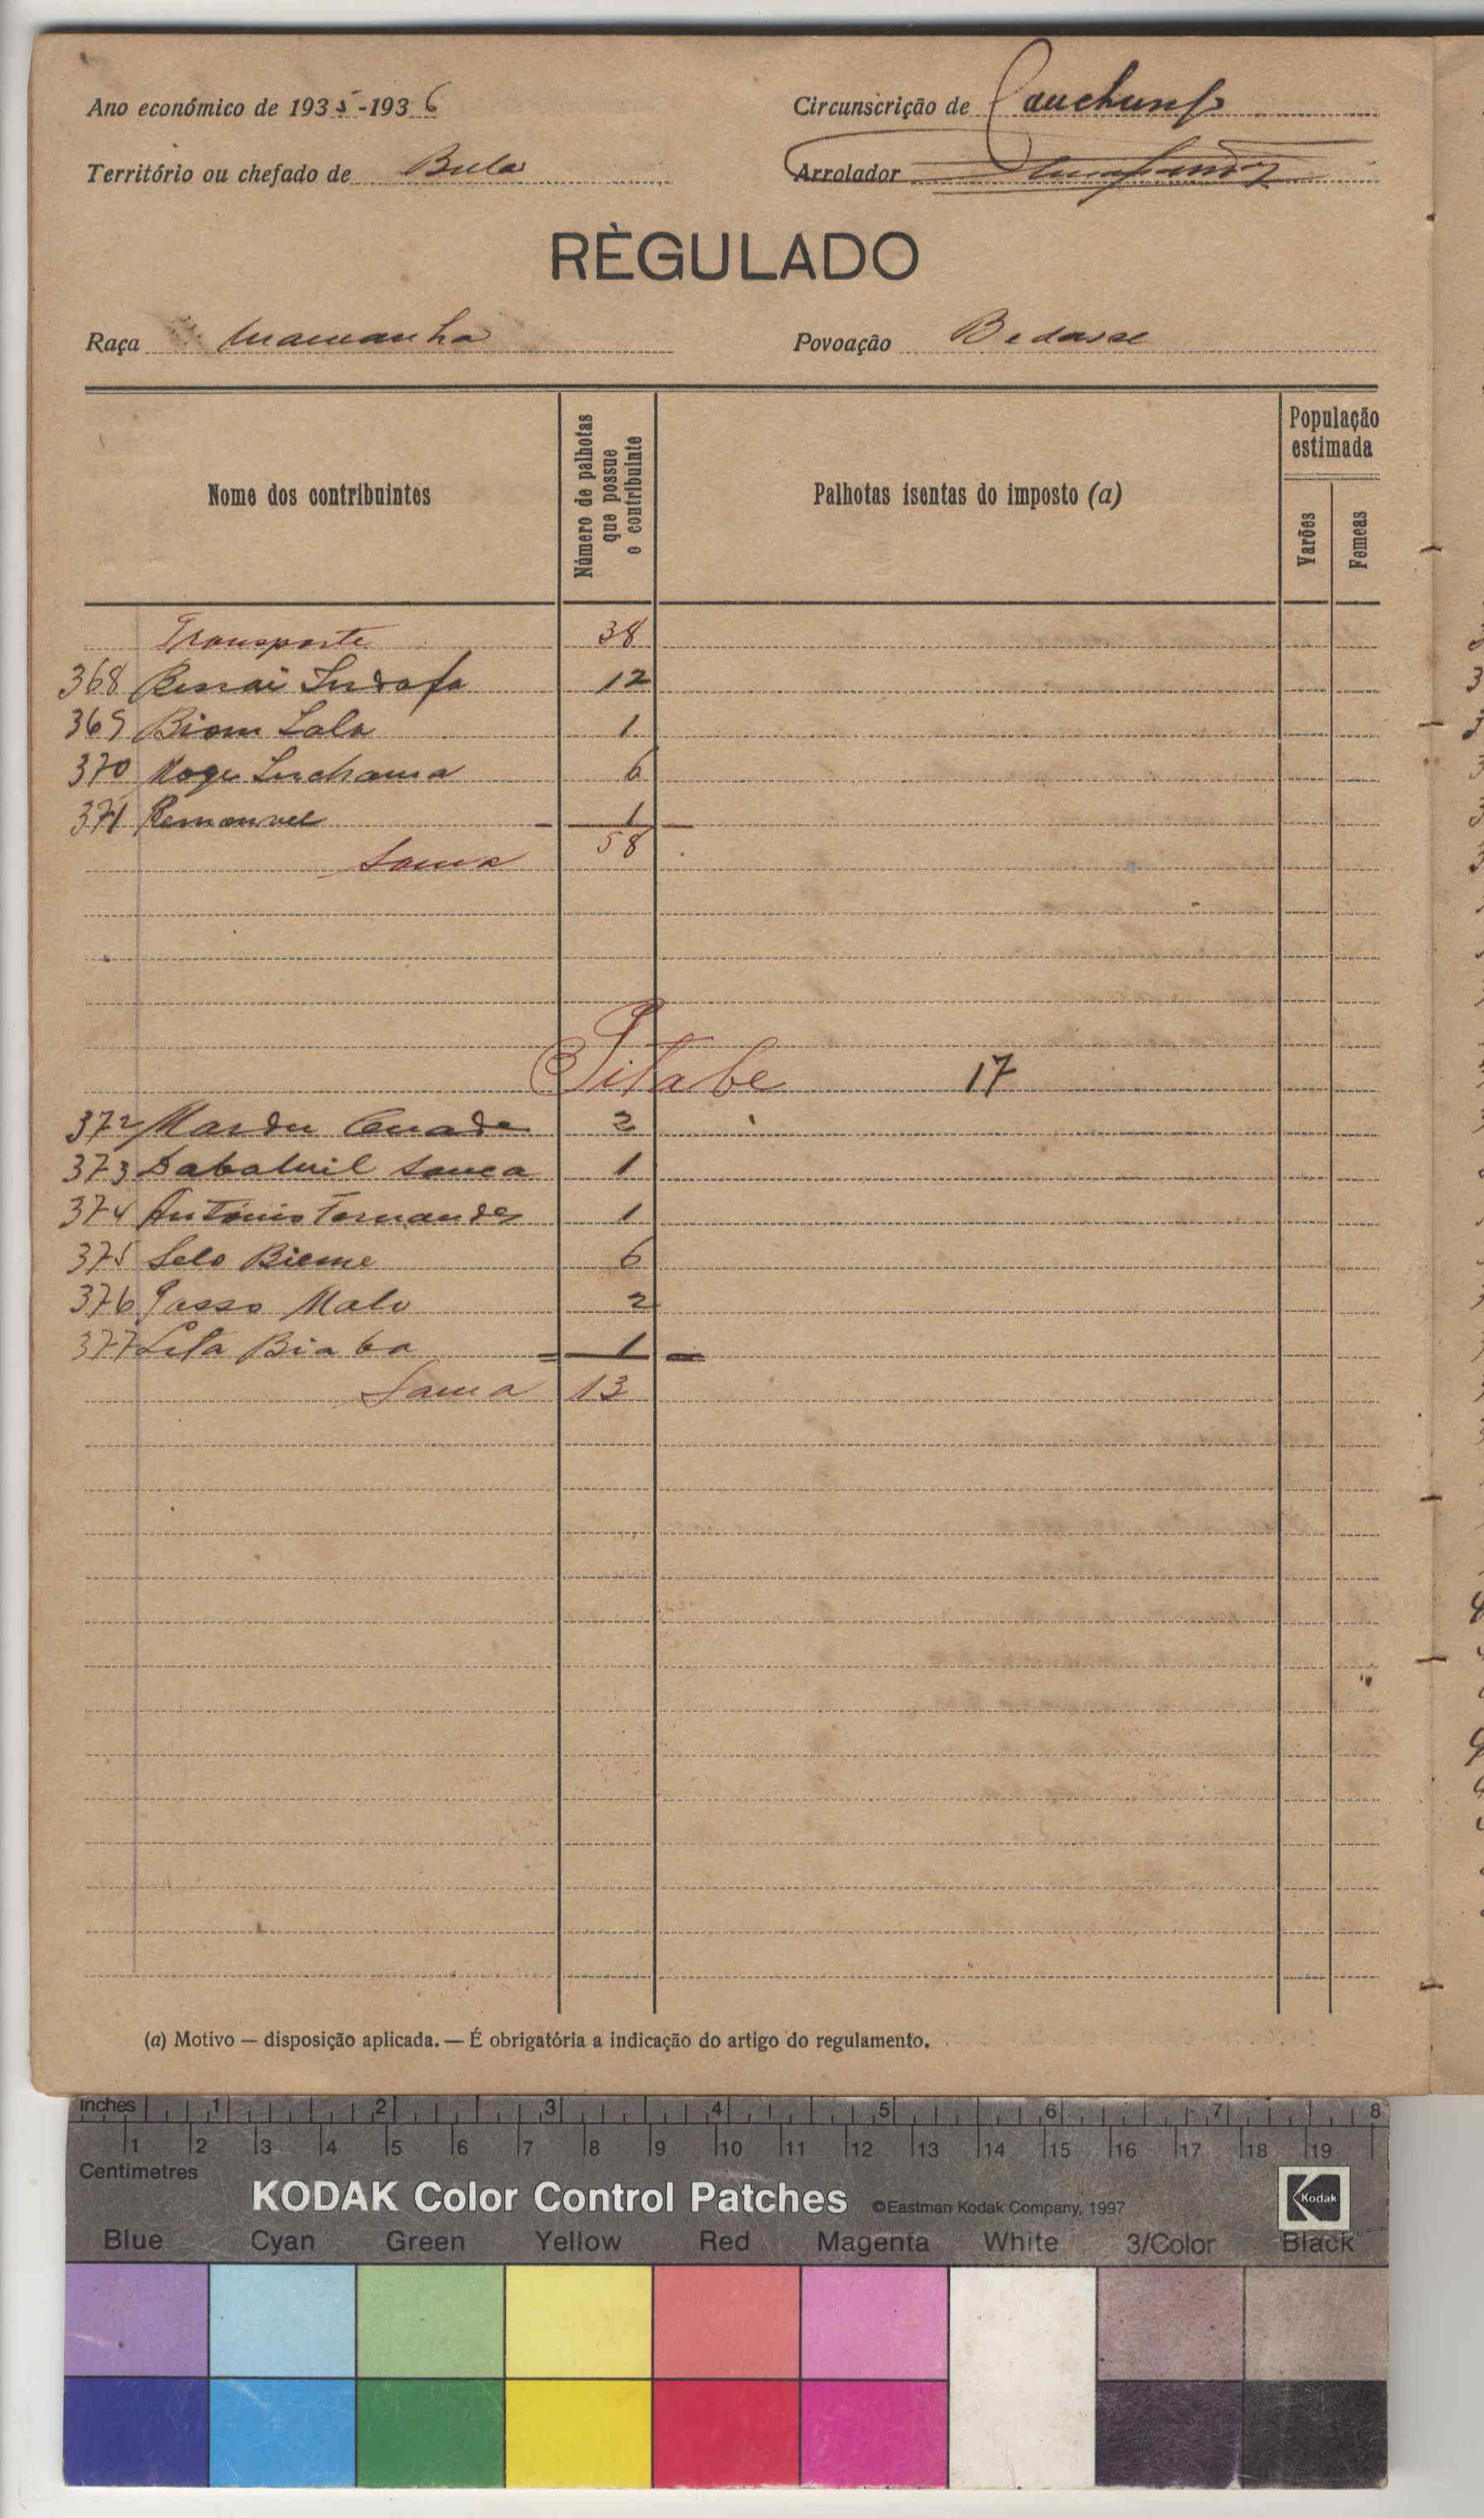 Ano económico de 1935-1936
Circunscrição de Canchungo
Território ou chefado de Bula
Arrolador
RÈGULADO
Raça Mamanha
Povoação Bedasse
Nome dos contribuintes
Número de palhotas que possue o contribuinte
Palhotas isentas do imposto (a)
População estimada
Varões
Femeas
Transporte 38
368 12
369 Biom Lalo 1
370 6
371 1
Soma 58
Pitabe 17
372 2
373 1
374 António Fernandes 1
375 Selo Bieme 6
376 Malo 2
377 Leta Biaba 1
Soma 13
(a) Motivo — disposição aplicada. — É obrigatória a indicação do artigo do regulamento.
Inches 1 2 3 4 5 6 7 8
1 2 3 4 5 6 7 8 9 10 11 12 13 14 15 16 17 18 19
Centimetres
KODAK Color Control Patches ©Eastman Kodak Company, 1997 Kodak
Blue Cyan Green Yellow Red Magenta White 3/Color Black